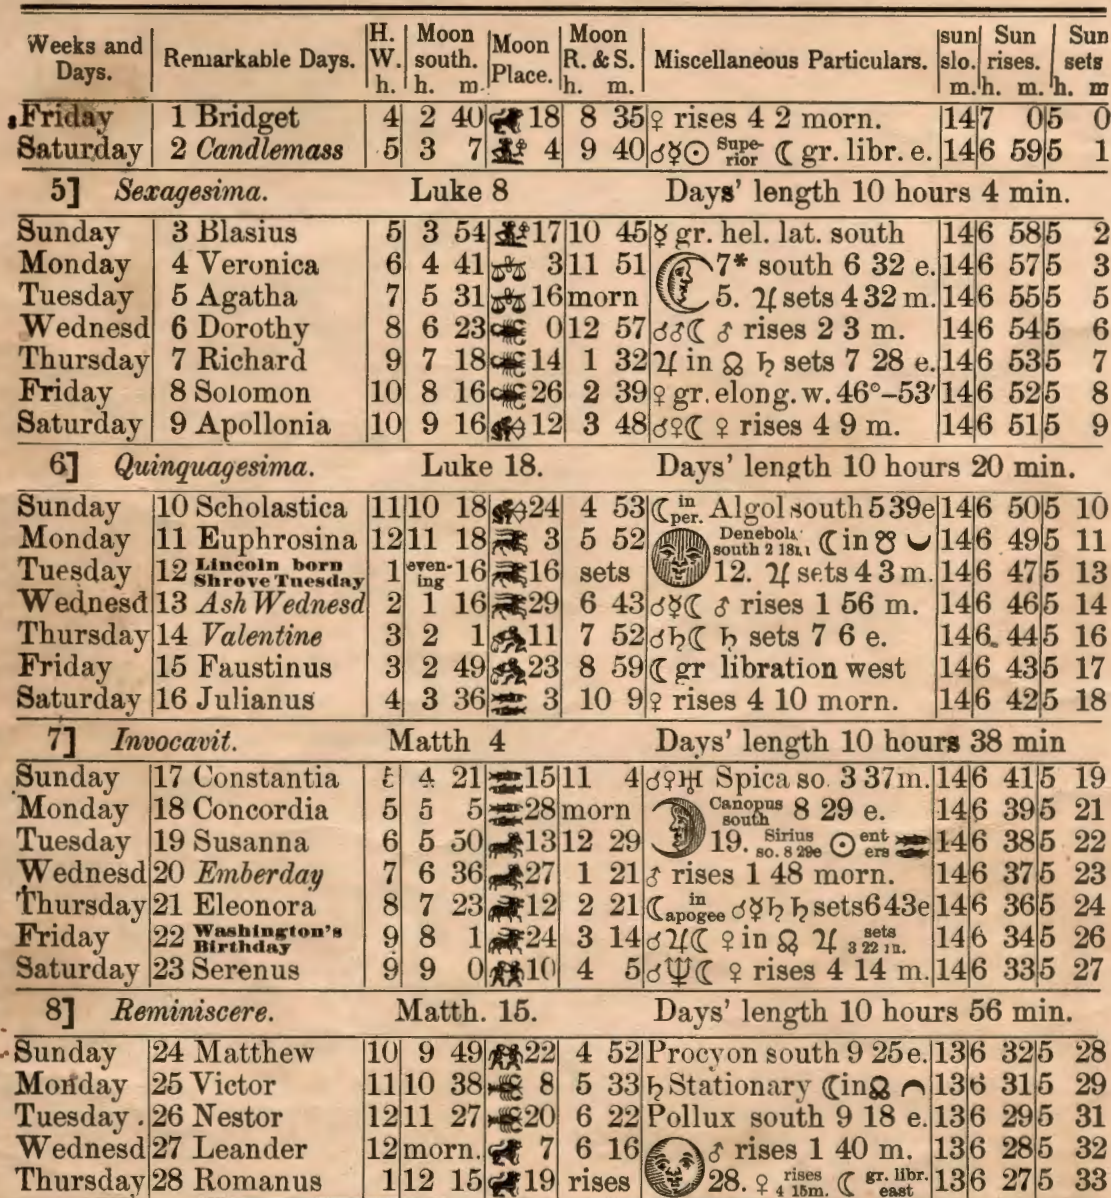 Weeks and Days. Remarkable Days. H. W. h. Moon south. h. m. Moon Place. Moon R. & S. h. m. Miscellaneous Particulars. sun slo. m. Sun rises. h. m. Sun sets h. m
Friday 1 Bridget 4 2 40 ♌ 18 8 35 ♀ rises 4 2 morn. 14 7 0 5 0
Saturday 2 Candlemass 5 3 7 ♍ 4 9 40 ☌☿☉ Superior ☾ gr. libr. e. 14 6 59 5 1
5] Sexagesima. Luke 8 Days' length 10 hours 4 min.
Sunday 3 Blasius 5 3 54 ♍ 17 10 45 ☿ gr. hel. lat. south 14 6 58 5 2
Monday 4 Veronica 6 4 41 ♎ 3 11 51 7* south 6 32 e. 14 6 57 5 3
Tuesday 5 Agatha 7 5 31 ♎ 16 morn 5. ♃ sets 4 32 m. 14 6 55 5 5
Wednesd 6 Dorothy 8 6 23 ♏ 0 12 57 ☌♂☾ ♂ rises 2 3 m. 14 6 54 5 6
Thursday 7 Richard 9 7 18 ♏ 14 1 32 ♃ in ☊ ♄ sets 7 28 e. 14 6 53 5 7
Friday 8 Solomon 10 8 16 ♏ 26 2 39 ♀ gr. elong. w. 46°–53′ 14 6 52 5 8
Saturday 9 Apollonia 10 9 16 ♐ 12 3 48 ☌♀☾ ♀ rises 4 9 m. 14 6 51 5 9
6] Quinquagesima. Luke 18. Days' length 10 hours 20 min.
Sunday 10 Scholastica 11 10 18 ♐ 24 4 53 ☾ in per. Algol south 5 39e 14 6 50 5 10
Monday 11 Euphrosina 12 11 18 ♑ 3 5 52 Denebola south 2 18 ☾ in ☋ 14 6 49 5 11
Tuesday 12 Lincoln born Shrove Tuesday 1 even-ing 16 ♑ 16 sets 12. ♃ sets 4 3 m. 14 6 47 5 13
Wednesd 13 Ash Wednesd 2 1 16 ♑ 29 6 43 ☌☿☾ ♂ rises 1 56 m. 14 6 46 5 14
Thursday 14 Valentine 3 2 1 ♒ 11 7 52 ☌♄☾ ♄ sets 7 6 e. 14 6 44 5 16
Friday 15 Faustinus 3 2 49 ♒ 23 8 59 ☾ gr libration west 14 6 43 5 17
Saturday 16 Julianus 4 3 36 ♓ 3 10 9 ♀ rises 4 10 morn. 14 6 42 5 18
7] Invocavit. Matth 4 Days' length 10 hours 38 min
Sunday 17 Constantia 4 21 ♓ 15 11 4 ☌♀♅ Spica so. 3 37m. 14 6 41 5 19
Monday 18 Concordia 5 5 5 ♓ 28 morn Canopus south 8 29 e. 14 6 39 5 21
Tuesday 19 Susanna 6 5 50 ♈ 13 12 29 19. Sirius so. 8 29e ☉ enters ♓ 14 6 38 5 22
Wednesd 20 Emberday 7 6 36 ♈ 27 1 21 ♂ rises 1 48 morn. 14 6 37 5 23
Thursday 21 Eleonora 8 7 23 ♉ 12 2 21 ☾ in apogee ☌☿♄ ♄ sets 6 43e 14 6 36 5 24
Friday 22 Washington's Birthday 9 8 1 ♉ 24 3 14 ☌♃☾ ♀ in ☊ ♃ sets 3 22 m. 14 6 34 5 26
Saturday 23 Serenus 9 9 0 ♊ 10 4 5 ☌♆☾ ♀ rises 4 14 m. 14 6 33 5 27
8] Reminiscere. Matth. 15. Days' length 10 hours 56 min.
Sunday 24 Matthew 10 9 49 ♊ 22 4 52 Procyon south 9 25 e. 13 6 32 5 28
Monday 25 Victor 11 10 38 ♋ 8 5 33 ♄ Stationary ☾ in ☊ 13 6 31 5 29
Tuesday 26 Nestor 12 11 27 ♋ 20 6 22 Pollux south 9 18 e. 13 6 29 5 31
Wednesd 27 Leander 12 morn. ♌ 7 6 16 ♂ rises 1 40 m. 13 6 28 5 32
Thursday 28 Romanus 1 12 15 ♌ 19 rises 28. ♀ rises 4 15m. ☾ gr. libr. east 13 6 27 5 33